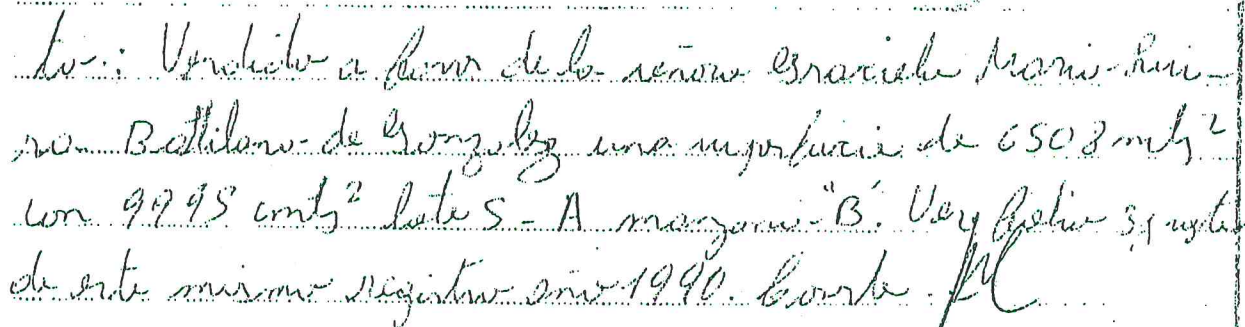 to.: Vendido a favor de la señora Graciela Maria
Battilana de Gonzalez una superficie de 6508 mts²
con 9995 cmts² lote 5-A manzana "B". Vey folio 39
de este mismo registro año 1990. Conste.